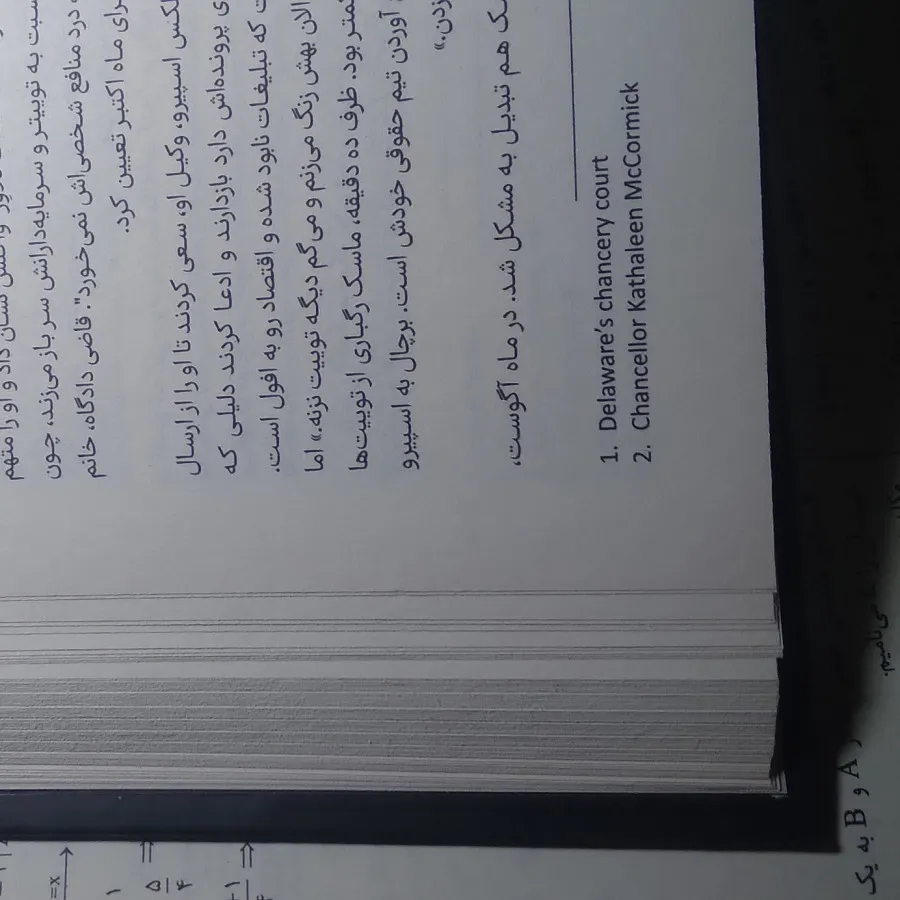 واکنش نشان داد و او را متهم
به توییتر و سرمایه‌دارانش سر باز می‌زند، چون
درد منافع شخصی‌اش نمی‌خورد" قاضی دادگاه، خانم
ماه اکتبر تعیین کرد.
اسپیرو، وکیل او، سعی کردند تا او را از ارسال
پرونده‌اش دارد بازدارند و ادعا کردند دلیلی که
که تبلیغات نابود شده و اقتصاد رو به افول است.
الان بهش زنگ می‌زنم و می‌گم دیگه توییت نزنه.» اما
کمتر بود. ظرف ده دقیقه، ماسک رگباری از توییت‌ها
آوردن تیم حقوقی خودش است. برچال به اسپیرو
زدن.»
هم تبدیل به مشکل شد. در ماه آگوست،
1. Delaware's chancery court
2. Chancellor Kathaleen McCormick
می‌نامیم.
A و B به یک